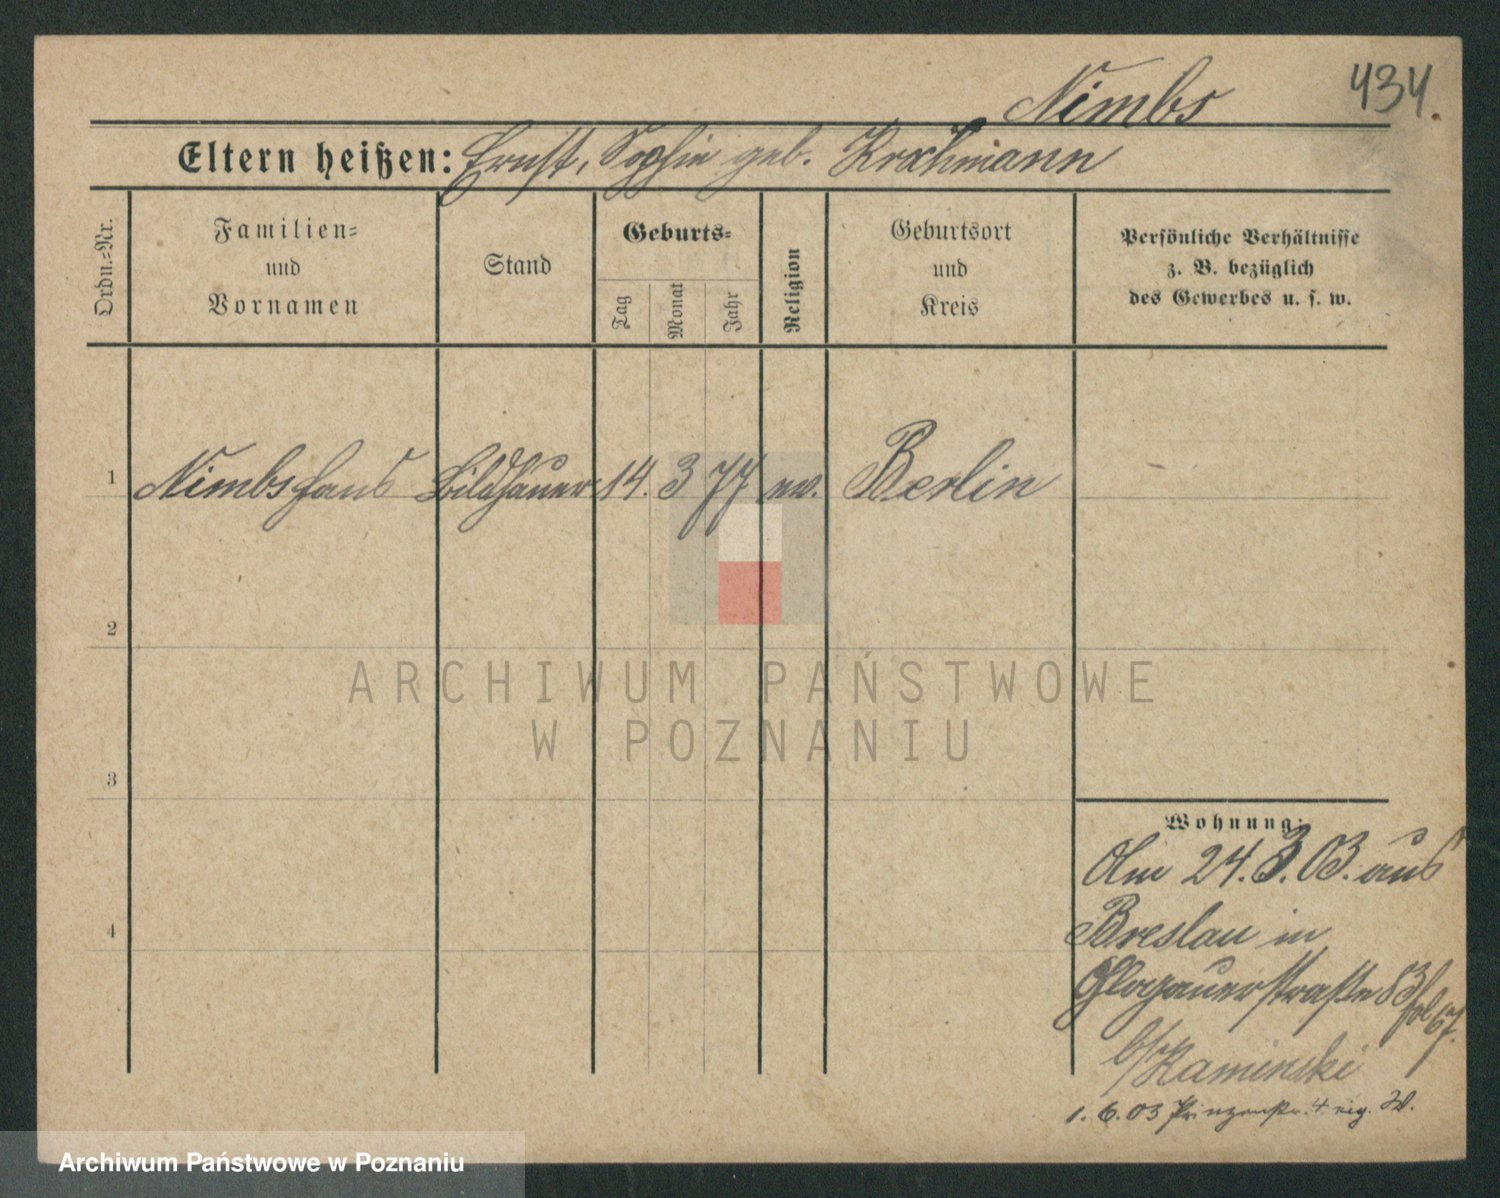 434.
Nimbs
Eltern heißen: Ernst, Sophie geb. Krahmann
Ordn.=Nr.
Familien=
und
Vornamen
Stand
Geburts=
Tag
Monat
Jahr
Religion
Geburtsort
und
Kreis
Persönliche Verhältnisse
z. B. bezüglich
des Gewerbes u. s. w.
1 Nimbs Hans Bildhauer 14. 3 77 ev. Berlin
2
3
4
Wohnung:
Am 24.3.03. aus
Breslau in
Glogauerstraße 83
fol 67.
b/Kaminski
1.6.03 Prinzenstr. 4 eig. W.
ARCHIWUM PAŃSTWOWE
W POZNANIU
Archiwum Państwowe w Poznaniu